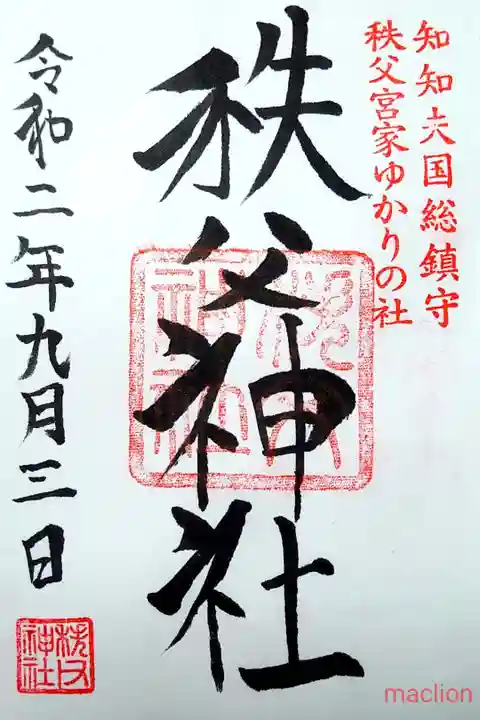 知知夫国総鎮守
秩父宮家ゆかりの社
秩父神社
令和二年九月三日
秩父神社
秩父神社
maclion